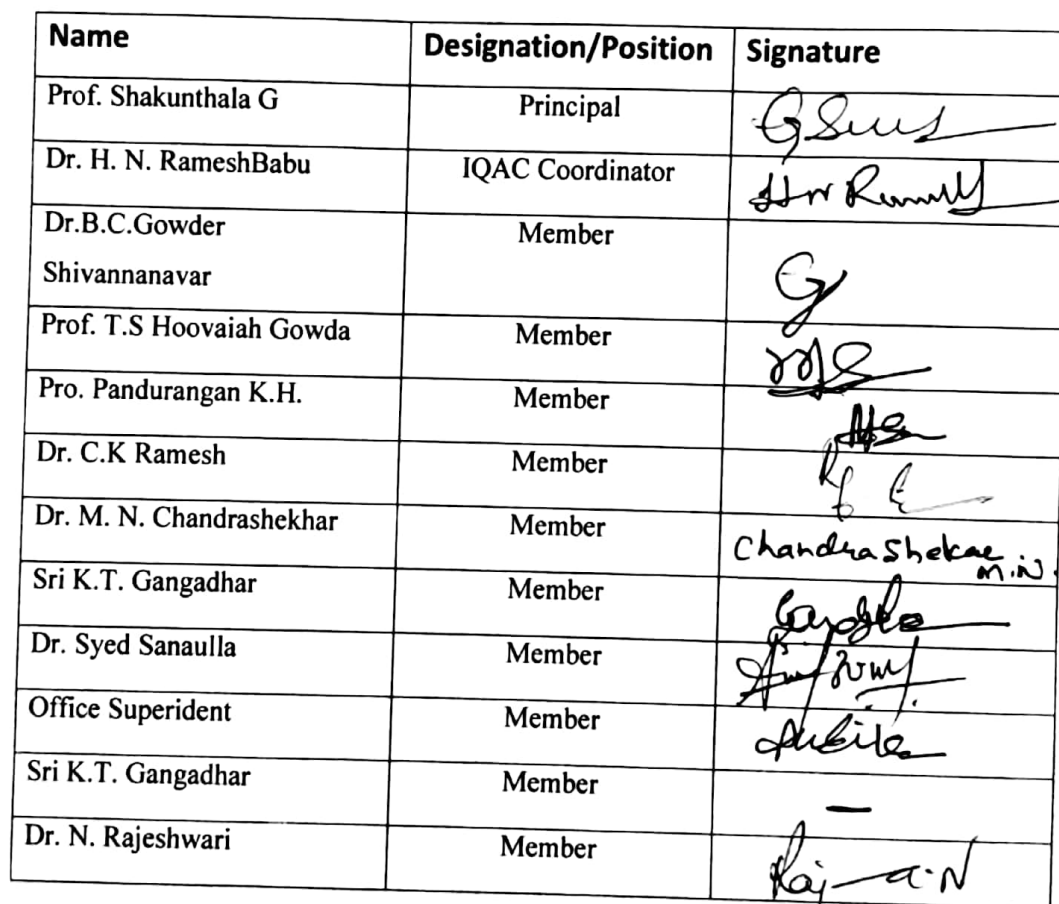 Name Designation/Position Signature
Prof. Shakunthala G Principal
Dr. H. N. RameshBabu IQAC Coordinator
Dr.B.C.Gowder Member
Shivannanavar
Prof. T.S Hoovaiah Gowda Member
Pro. Pandurangan K.H. Member
Dr. C.K Ramesh Member
Dr. M. N. Chandrashekhar Member Chandrashekar
M.N.
Sri K.T. Gangadhar Member
Dr. Syed Sanaulla Member
Office Superident Member
Sri K.T. Gangadhar Member —
Dr. N. Rajeshwari Member